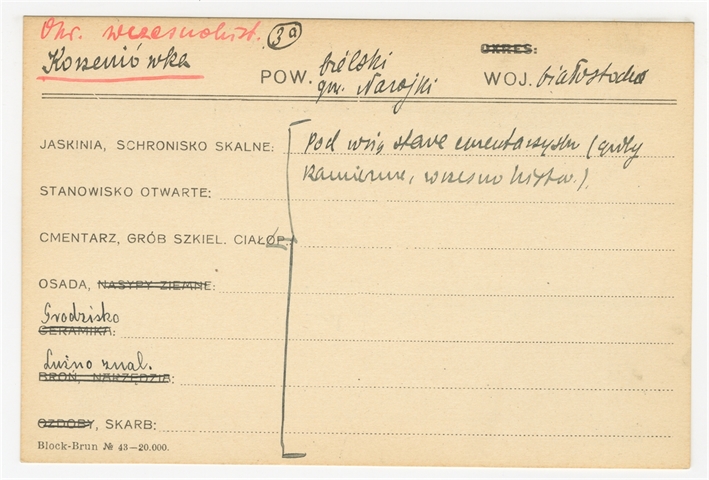 Okr. wczesnohist. 3a
Korzeniówka POW. bielski OKRES:
gm. Narojki WOJ. białostockie
JASKINIA, SCHRONISKO SKALNE: Pod wsią stare cmentarzysko (groby
kamienne, wczesno histor.).
STANOWISKO OTWARTE:
CMENTARZ, GRÓB SZKIEL. CIAŁOP.:
OSADA, NASYPY ZIEMNE:
Grodzisko
CERAMIKA:
Luźno znal.
BROŃ, NARZĘDZIA:
OZDOBY, SKARB:
Block-Brun № 43—20.000.